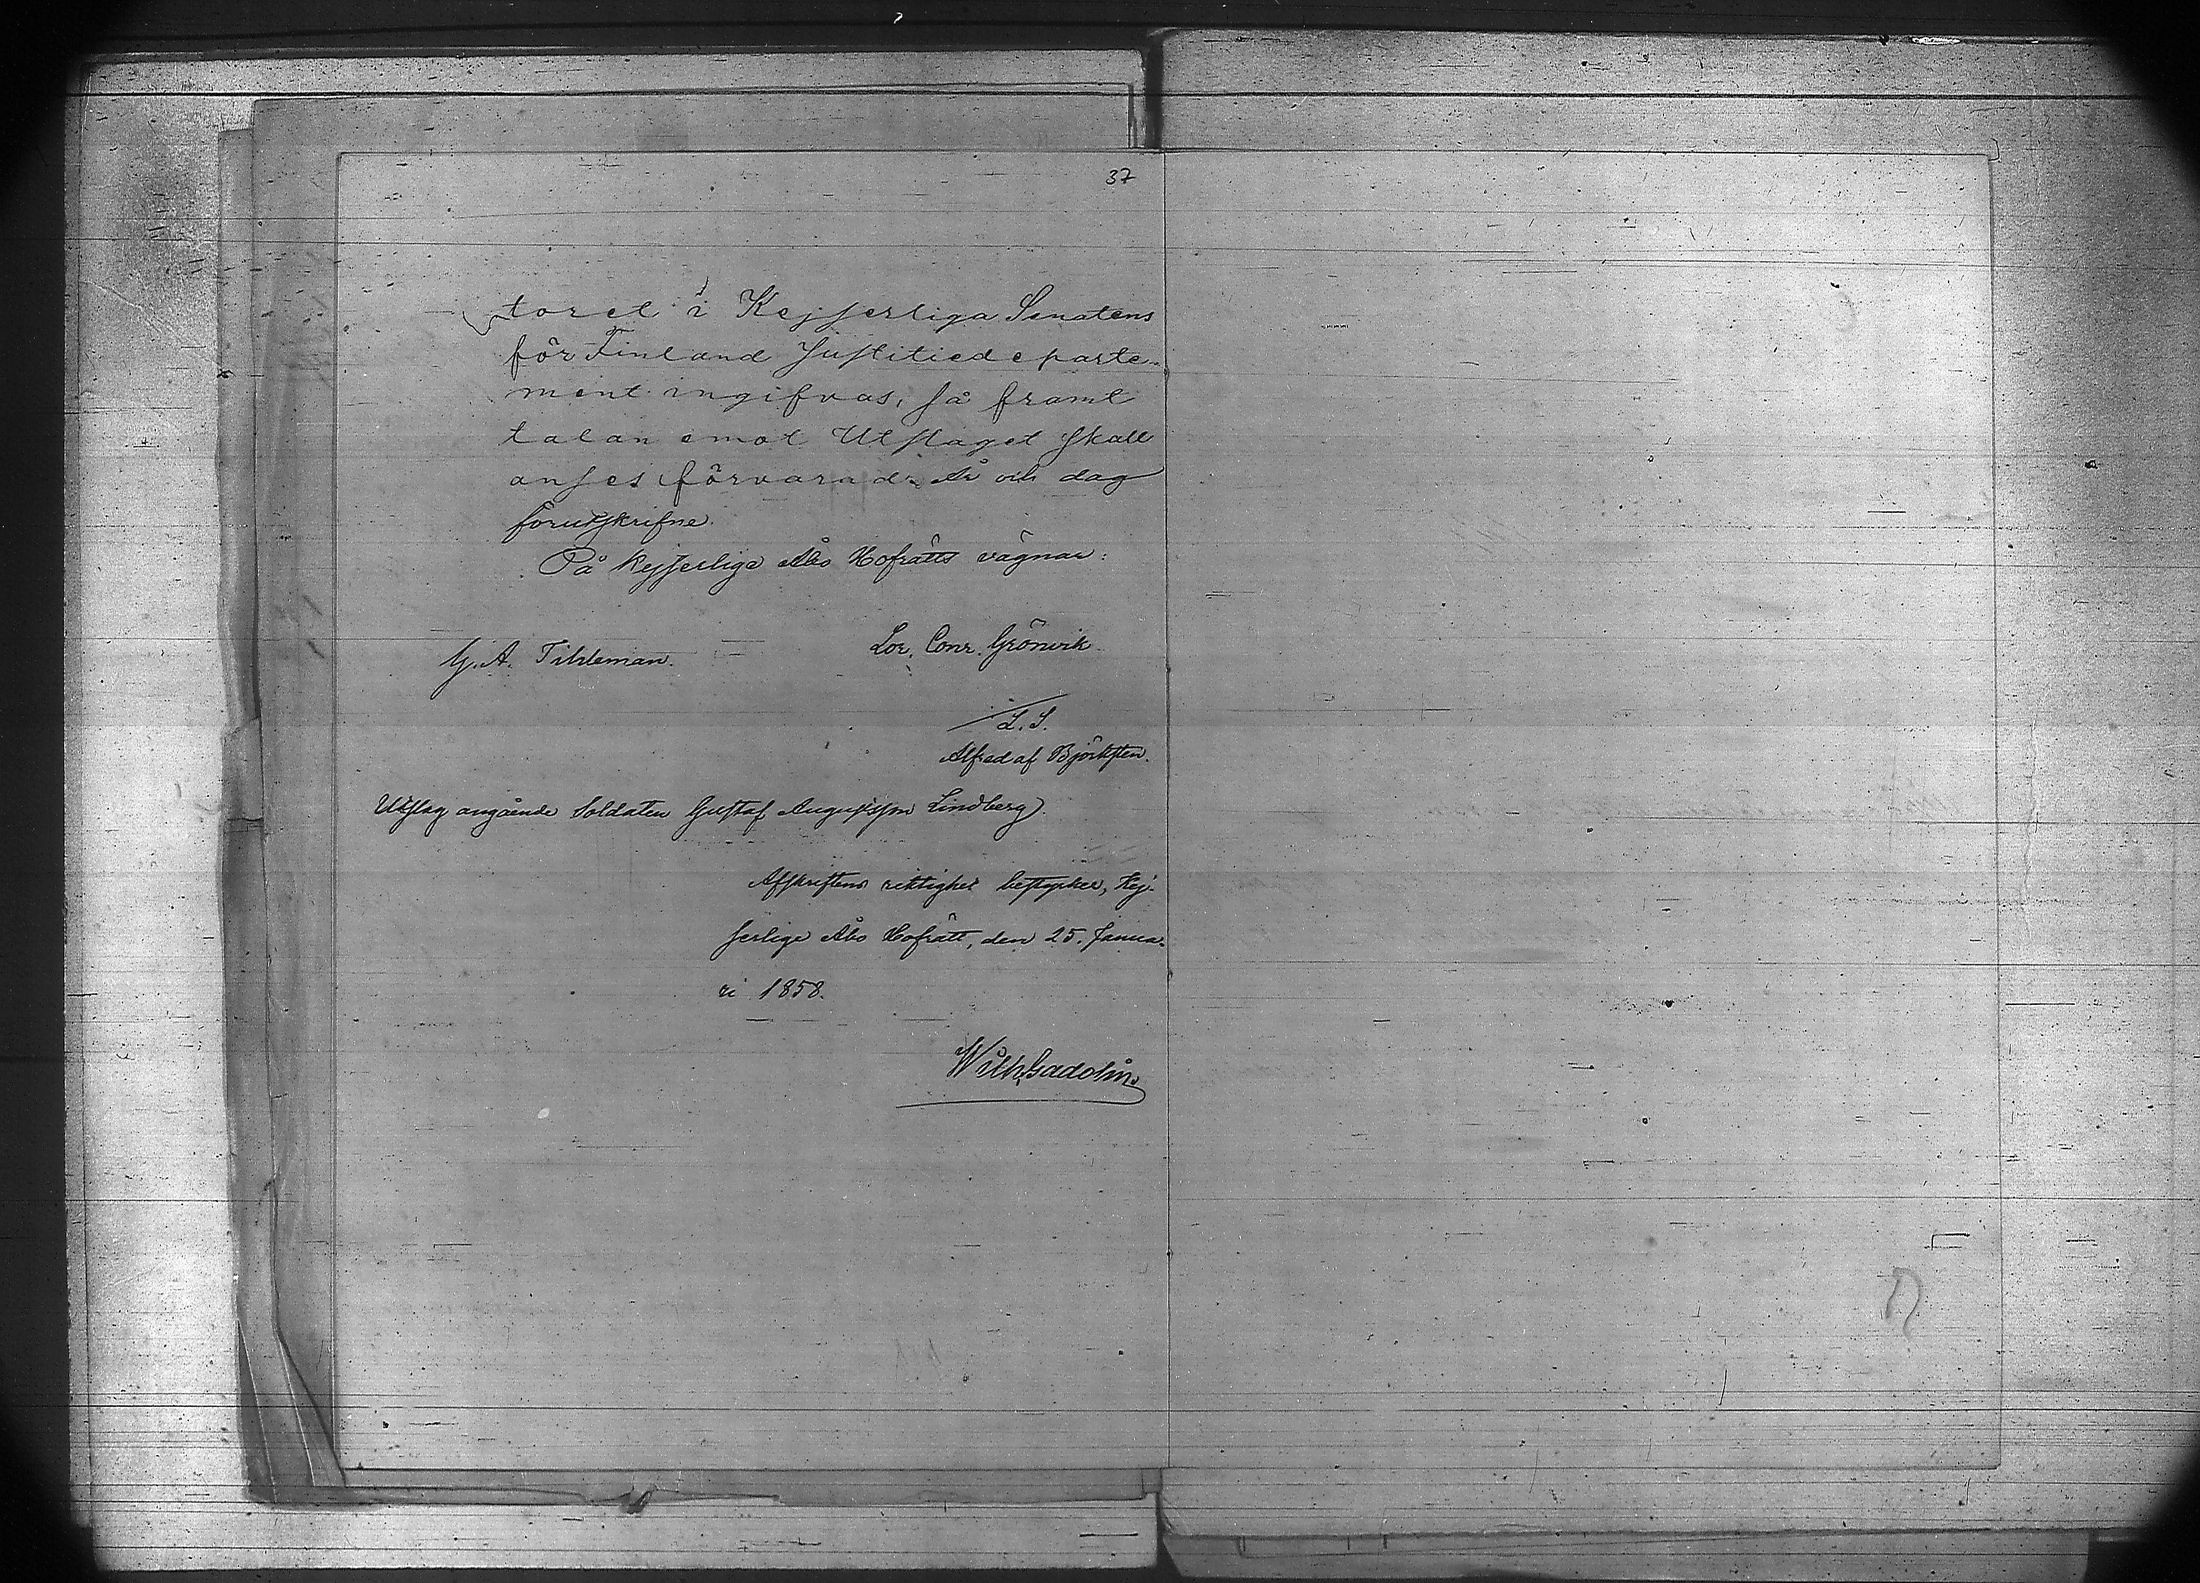 37
toret i Kejserliga Senatens
för Finland Justitiedeparte-
ment ingifvas, så framt
talan emot Utslaget skall
anses förvarad. År och dag
förutskrifne.
På Kejserliga Åbo Hofrätts vägnar:
Lor. Conr. Grönvik
G. A. Tihleman.
L. S.
Alfred af Björksten.
Utslag angående Soldaten Gustaf Augustsson Lindberg.
Afskriftens riktighet bestyrker, Kej-
serliga Åbo Hofrätt, den 25. Janua-
ri 1858.
Wilh Gadolin